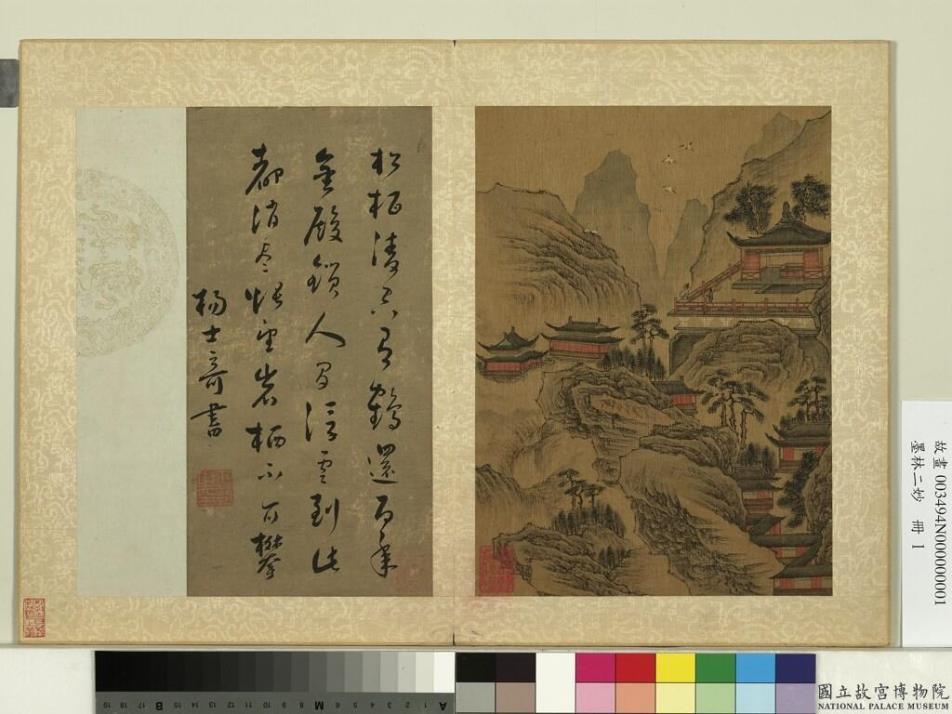 松栢凌空有鶴還百年
金殿鎖人間浮雲到此
都消盡悵望岩栖不可攀
楊士奇書
故畫 003494N000000001
墨林二妙 冊 1
國立故宮博物院
NATIONAL PALACE MUSEUM